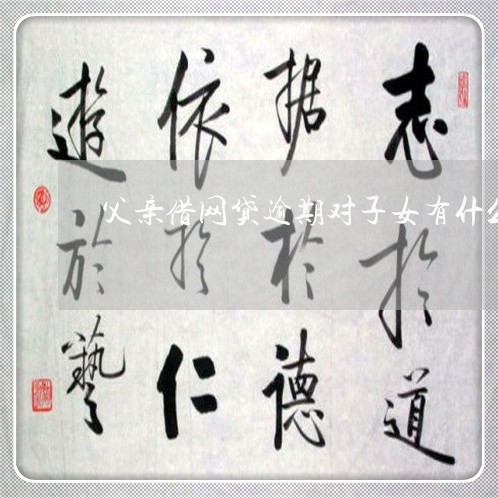 志於道
据於德
依於仁
遊於藝
父亲借网贷逾期对子女有什